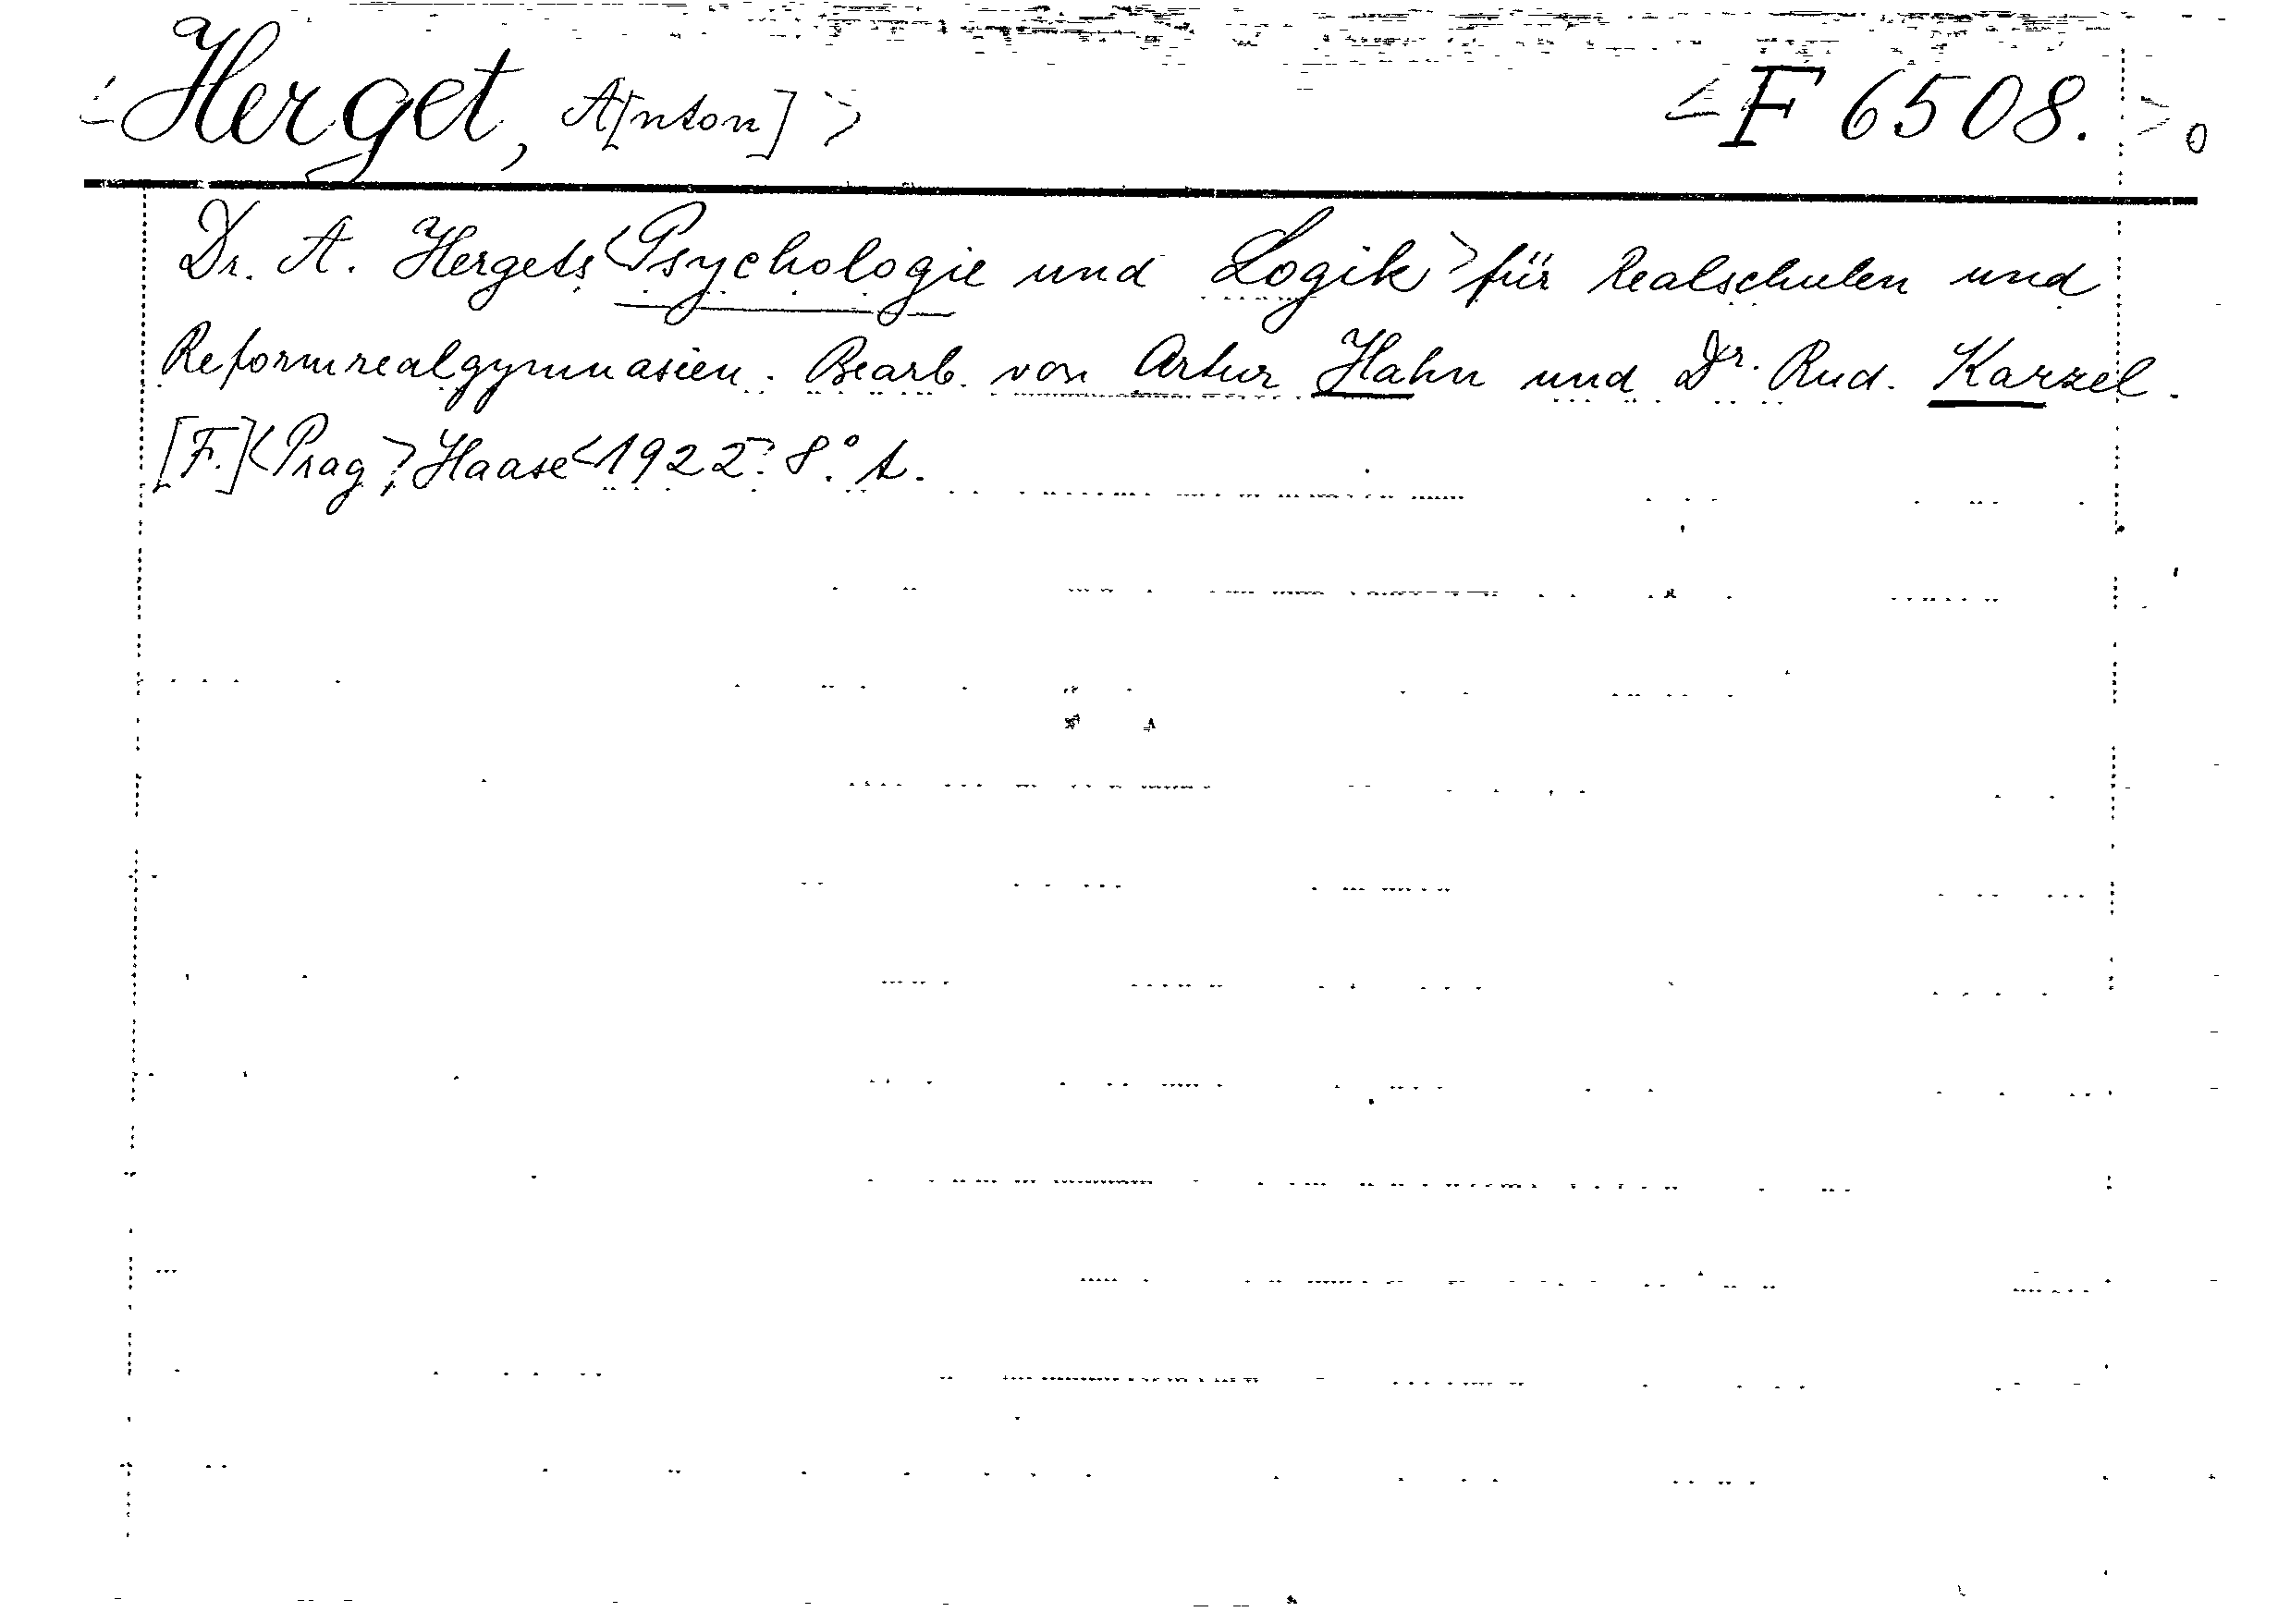 <Herget, A[nton]> <F 6508.>0
Dr. A. Hergets <Psychologie und Logik> für Realschulen und
Reformrealgymnasien. Bearb. von Artur Hahn und Dr. Rud. Karzel.
[F.] <Prag>, Haase <1922>. 8.° A.